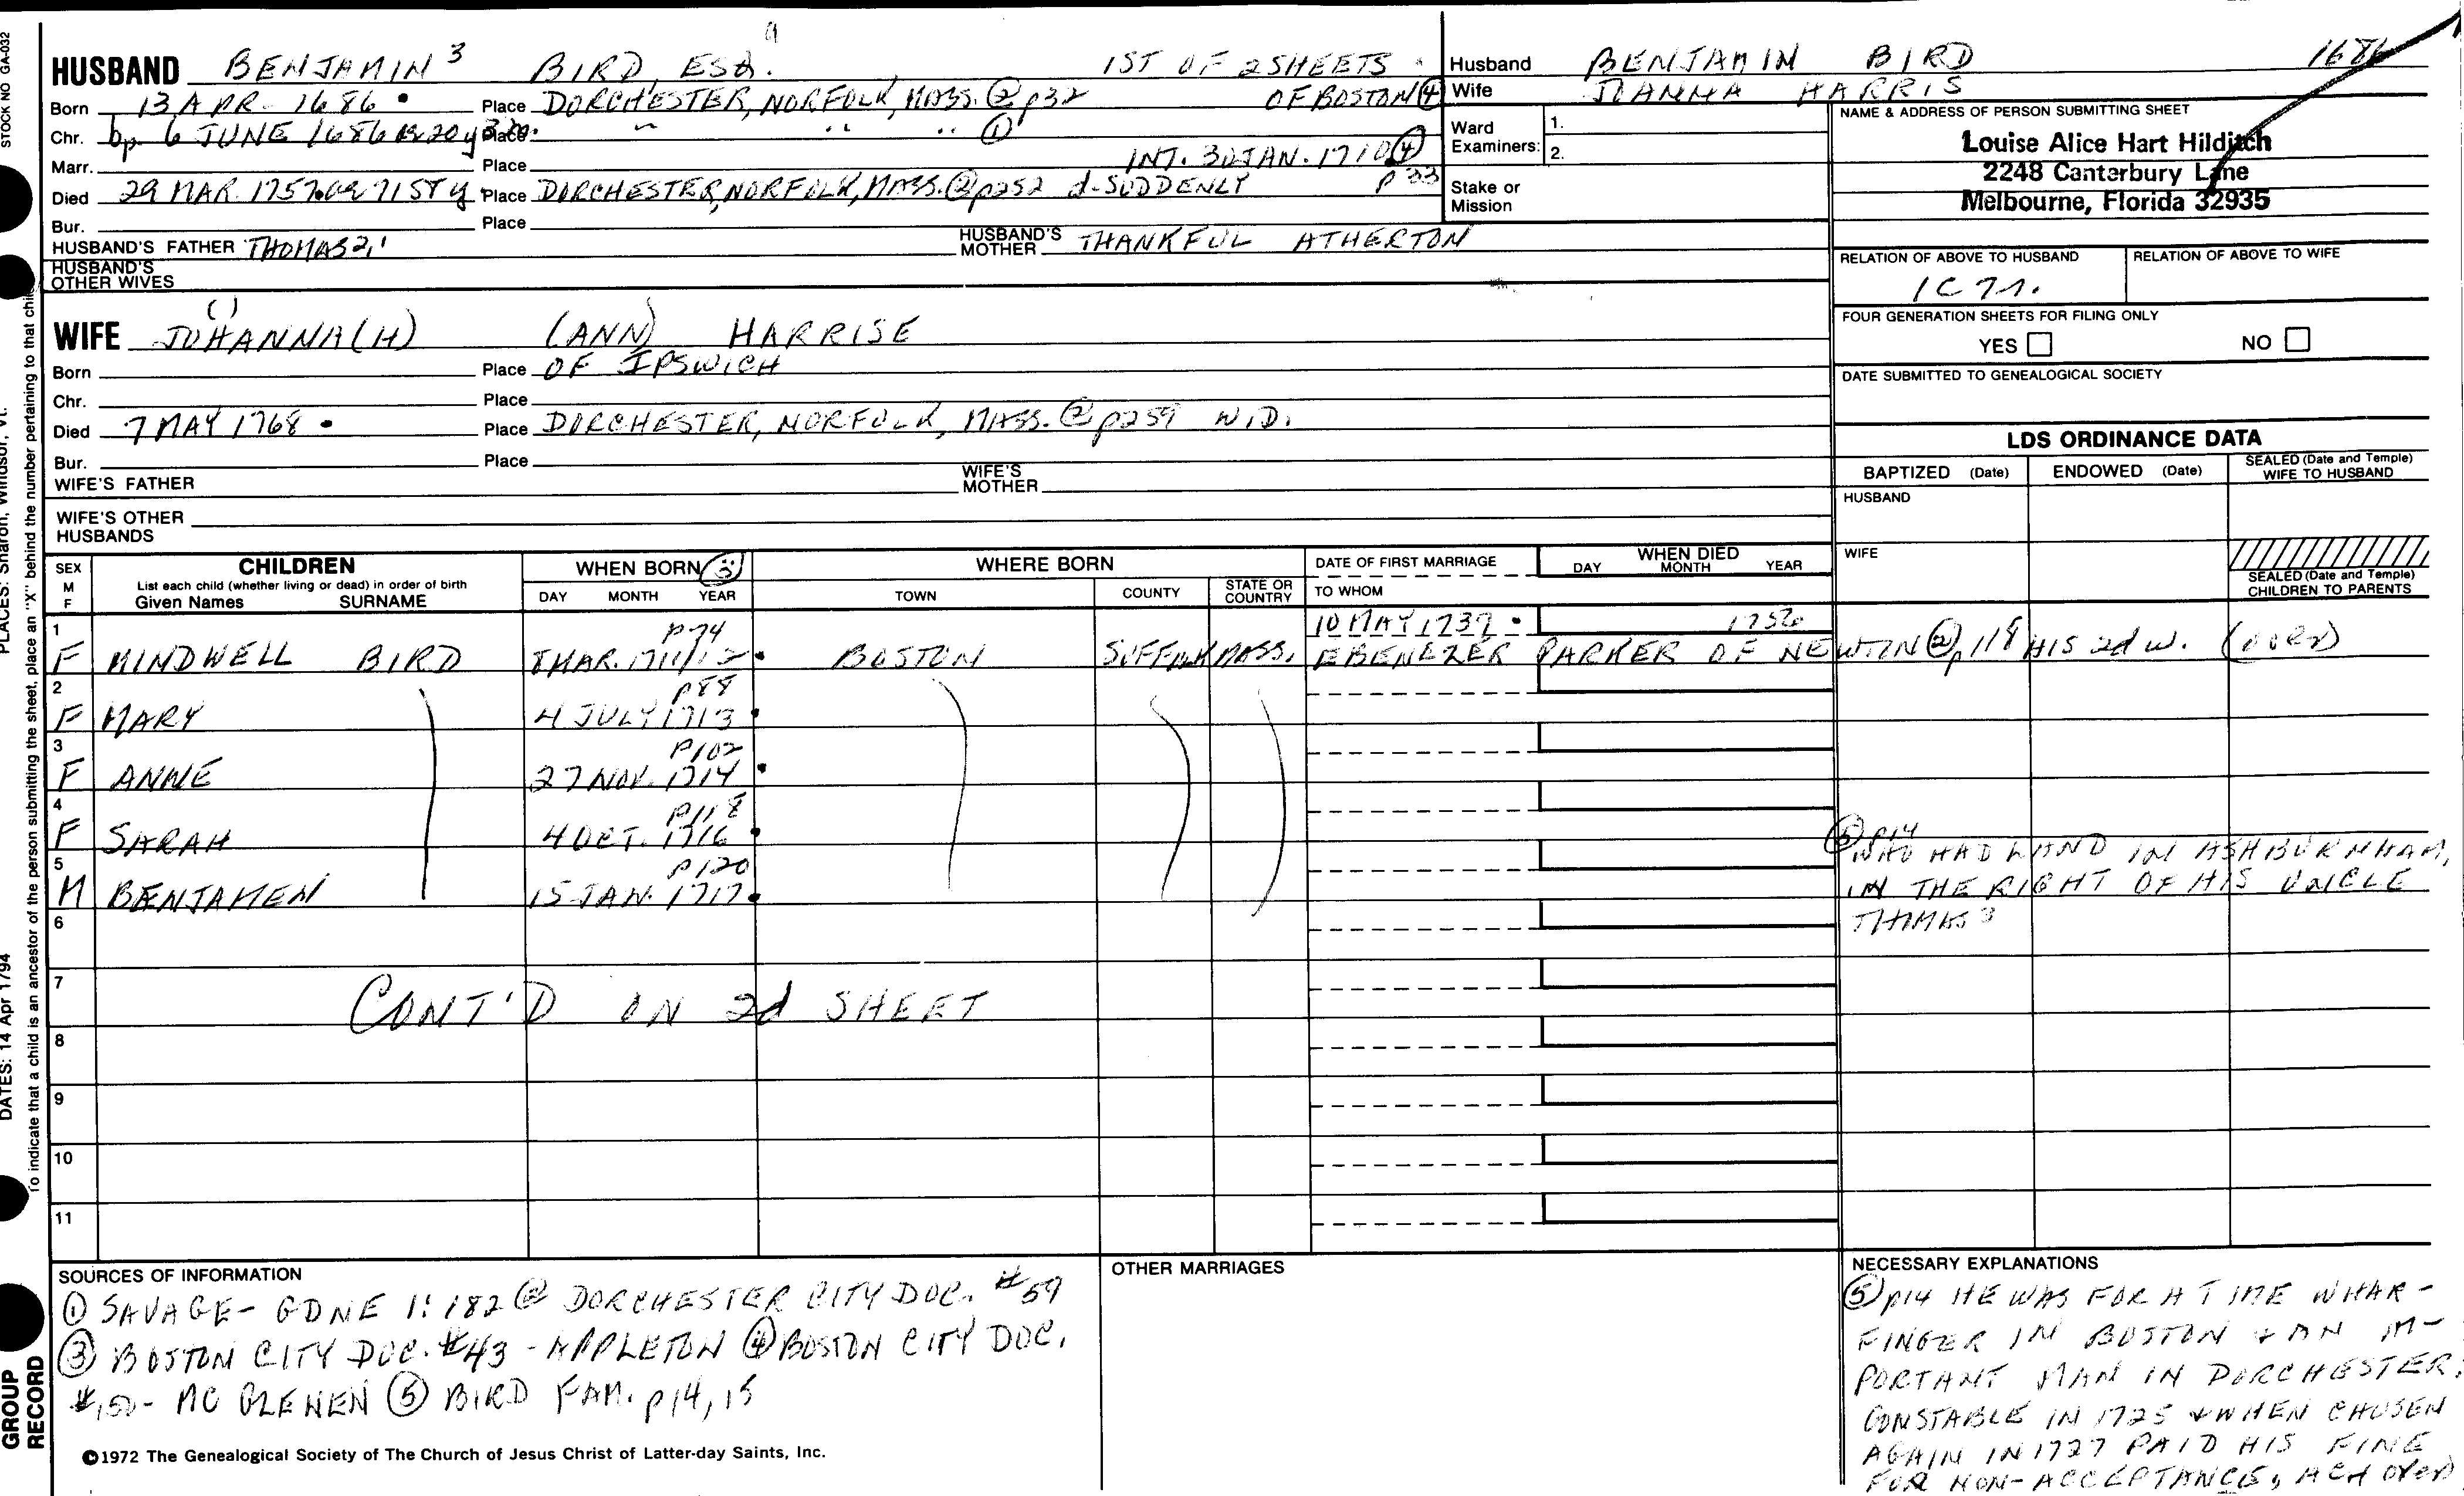 STOCK NO GA-032
HUSBAND BENJAMIN 3 BIRD, ESQ. 1ST OF 2 SHEETS
Born 13 APR. 1686 Place DORCHESTER, NORFOLK, MASS. ② p32 OF BOSTON ④
Chr. bp 6 JUNE 1686 Place " " " ①
Marr. Place INT. 30 JAN. 1710 ④ p33
Died 29 MAR. 1757 71ST y Place DORCHESTER, NORFOLK, MASS. ② p252 d-SUDDENLY
Bur. Place
HUSBAND'S FATHER THOMAS 2,1 HUSBAND'S MOTHER THANKFUL ATHERTON
HUSBAND'S OTHER WIVES
WIFE JOHANNA(H) (ANN) HARRISE
Born Place OF IPSWICH
Chr. Place
Died 7 MAY 1768 Place DORCHESTER, NORFOLK, MASS. ② p259 WID.
Bur. Place
WIFE'S FATHER WIFE'S MOTHER
WIFE'S OTHER HUSBANDS
Husband BENJAMIN BIRD 1686
Wife JOANNA HARRIS
Ward Examiners: 1.
2.
Stake or Mission
NAME & ADDRESS OF PERSON SUBMITTING SHEET
Louise Alice Hart Hilditch
2248 Canterbury Lane
Melbourne, Florida 32935
RELATION OF ABOVE TO HUSBAND RELATION OF ABOVE TO WIFE
1C 7r.
FOUR GENERATION SHEETS FOR FILING ONLY
YES NO
DATE SUBMITTED TO GENEALOGICAL SOCIETY
LDS ORDINANCE DATA
BAPTIZED (Date) ENDOWED (Date) SEALED (Date and Temple) WIFE TO HUSBAND
HUSBAND
WIFE
SEALED (Date and Temple) CHILDREN TO PARENTS
SEX M F CHILDREN WHEN BORN ③ WHERE BORN DATE OF FIRST MARRIAGE WHEN DIED
List each child (whether living or dead) in order of birth
Given Names SURNAME DAY MONTH YEAR TOWN COUNTY STATE OR COUNTRY TO WHOM DAY MONTH YEAR
p74 10 MAY 1737 1750
1 F MINDWELL BIRD 7 MAR. 1711/12 BOSTON SUFFOLK MASS. EBENEZER PARKER OF NEWTON ② p118 HIS 2d w. (OVER)
p88
2 F MARY 4 JULY 1713
p102
3 F ANNE 27 NOV. 1714
p118
4 F SARAH 4 OCT. 1716
p120
5 M BENJAMEN 15 JAN. 1717
⑤ p14
WHO HAD LAND IN ASHBURNHAM,
IN THE RIGHT OF HIS UNCLE
THOMAS 3
6
7
CONT'D ON 2d SHEET
8
9
10
11
SOURCES OF INFORMATION
① SAVAGE - GDNE 1:182 ② DORCHESTER CITY DOC. #59
③ BOSTON CITY DOC. #43 - APPLETON ④ BOSTON CITY DOC.
#150 - MC GLENEN ⑤ BIRD FAM. p14, 15
OTHER MARRIAGES
NECESSARY EXPLANATIONS
⑤ p14 HE WAS FOR A TIME WHAR-
FINGER IN BOSTON + AN IM-
PORTANT MAN IN DORCHESTER;
CONSTABLE IN 1725 + WHEN CHOSEN
AGAIN IN 1727 PAID HIS FINE
FOR NON-ACCEPTANCE,
©1972 The Genealogical Society of The Church of Jesus Christ of Latter-day Saints, Inc.
PLACES: Sharon, Windsor, Vt.
DATES: 14 Apr 1794
To indicate that a child is an ancestor of the person submitting the sheet, place an "X" behind the number pertaining to that child
GROUP
RECORD